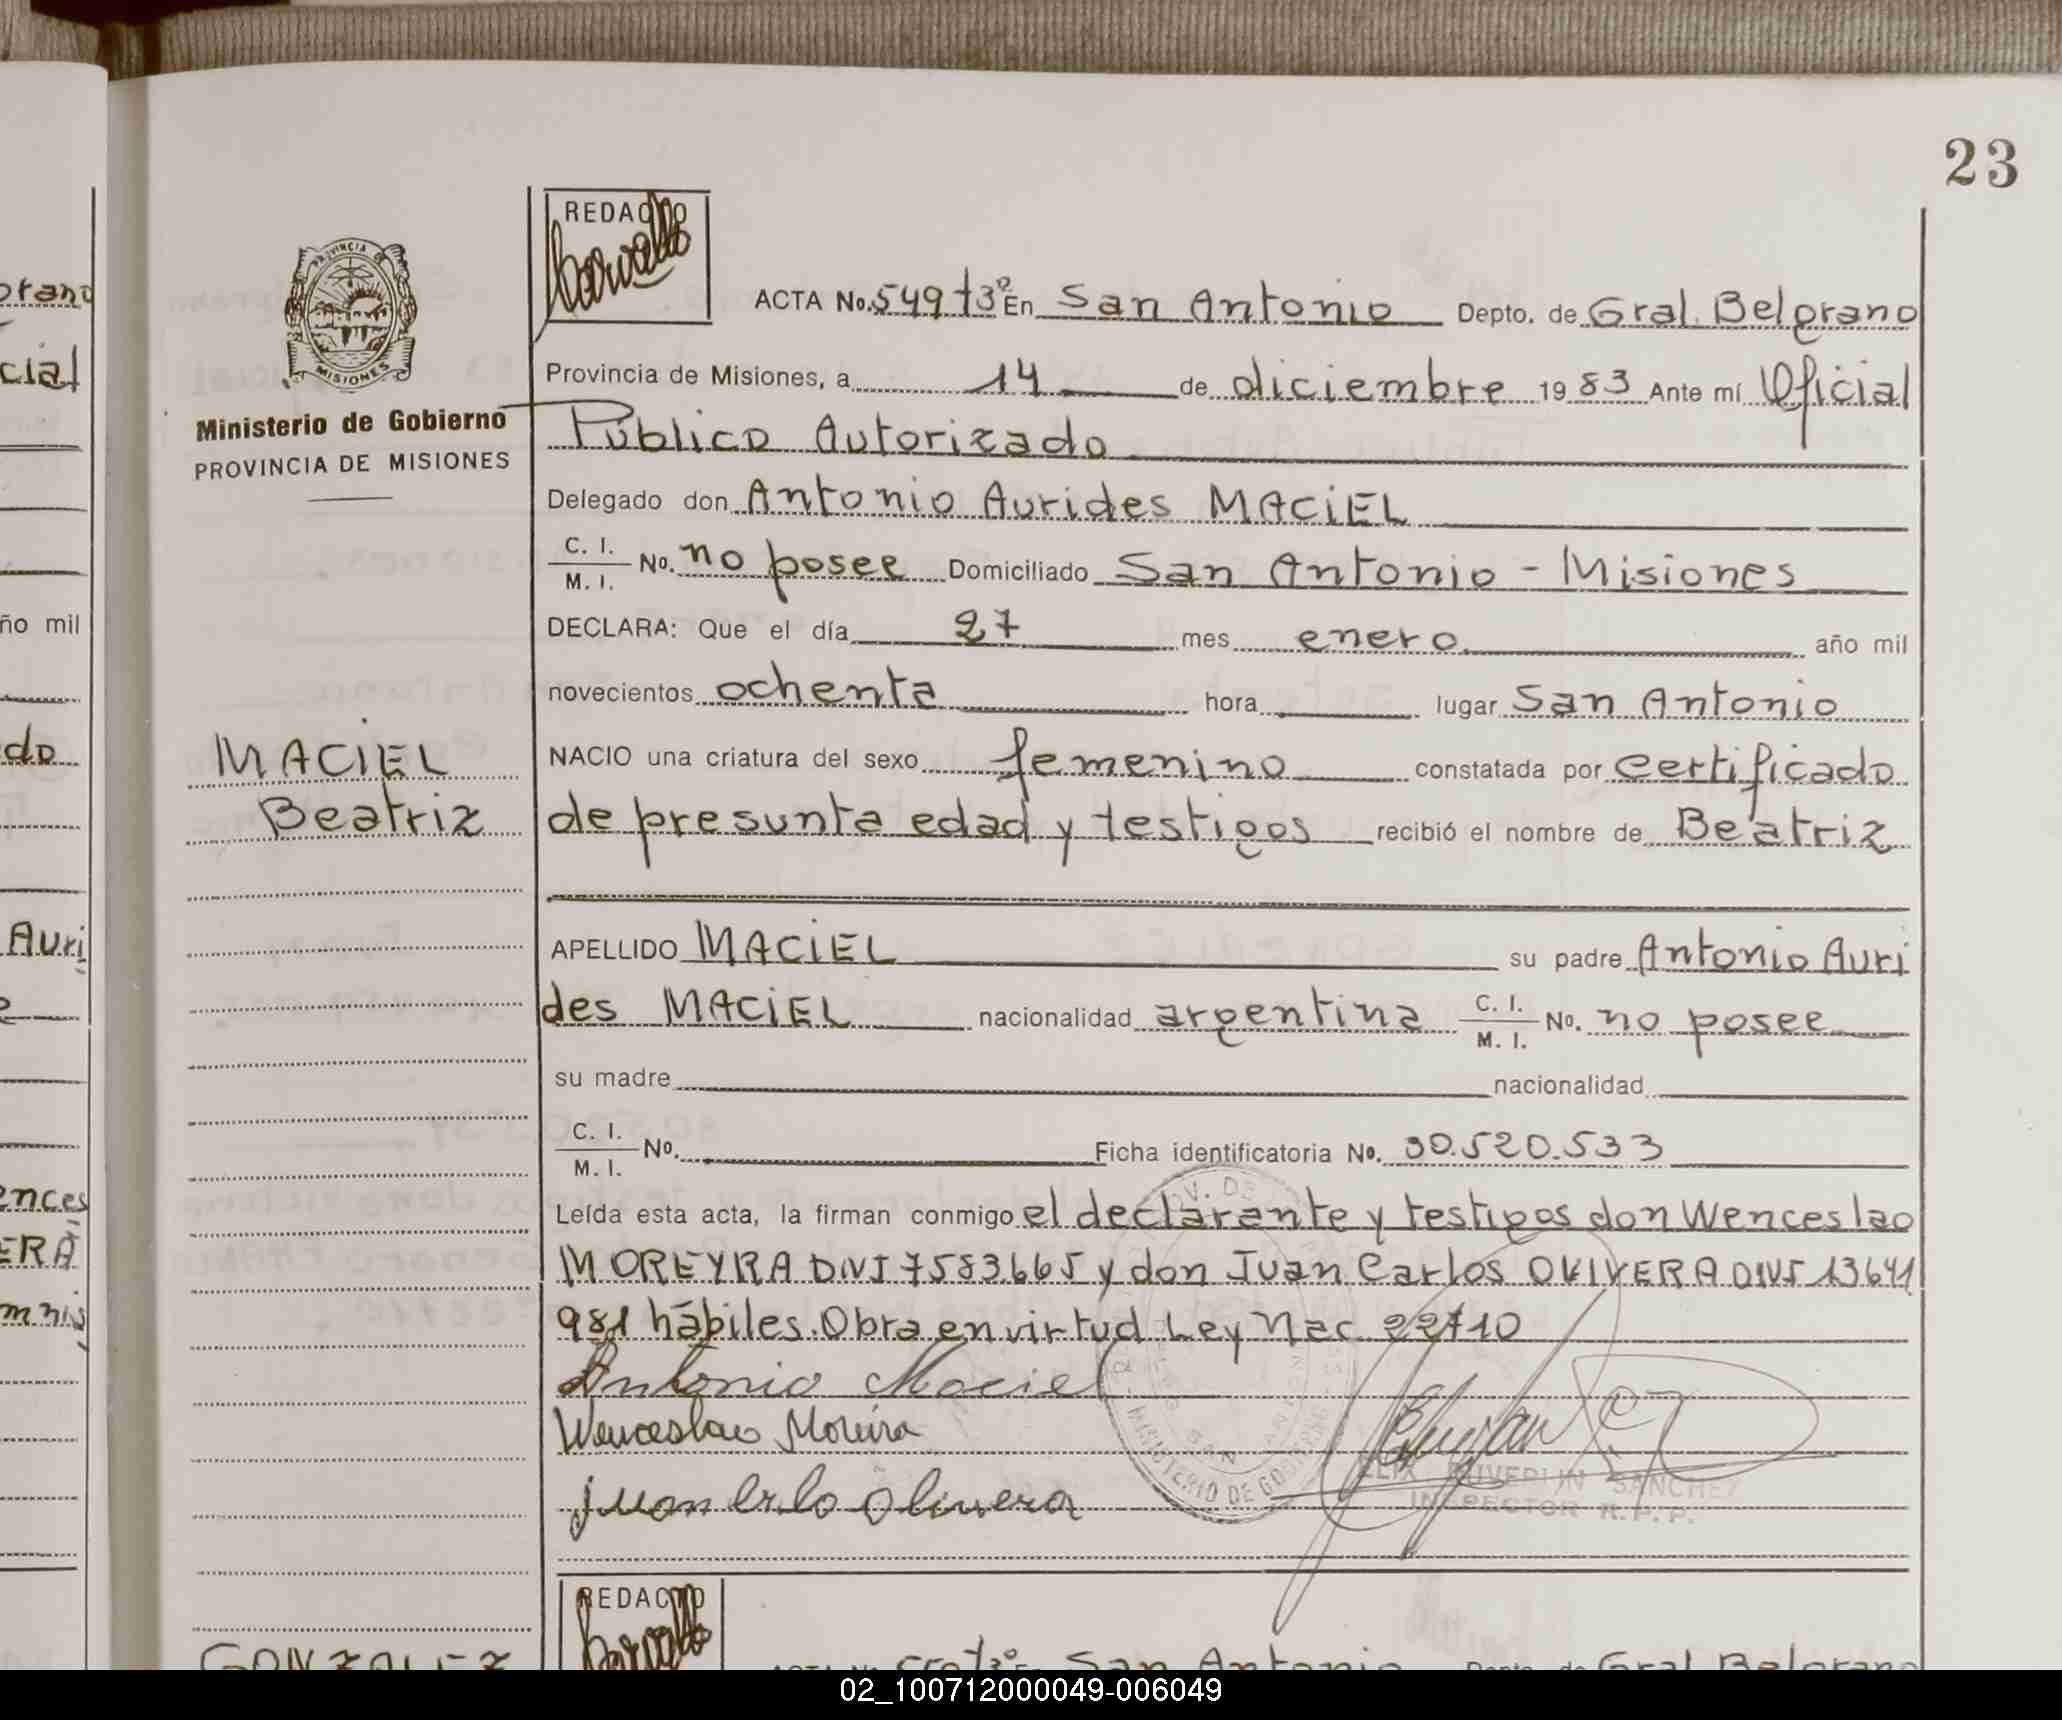 23
REDACTO
ACTA No. 549 t3º En San Antonio Depto. de Gral. Belgrano
Provincia de Misiones, a 14 de diciembre 1983 Ante mí Oficial
Público Autorizado
Delegado don Antonio Aurides MACIEL
C. I. / M. I. No. no posee Domiciliado San Antonio - Misiones
DECLARA: Que el día 27 mes enero año mil
novecientos ochenta hora lugar San Antonio
NACIO una criatura del sexo femenino constatada por certificado
de presunta edad y testigos recibió el nombre de Beatriz
APELLIDO MACIEL su padre Antonio Auri
des MACIEL nacionalidad argentina C. I. / M. I. No. no posee
su madre nacionalidad
C. I. / M. I. No. Ficha identificatoria No. 30.520.533
Leída esta acta, la firman conmigo el declarante y testigos don Wenceslao
MOREYRA DNI 7583.665 y don Juan Carlos OLIVERA DNI 13641
981 hábiles. Obra en virtud Ley Nac. 22710
Antonio Maciel
Wenceslao Moreira
Juan Crlo Olivera
MINISTERIO DE GOBIERNO
SANCHEZ
INSPECTOR R.P.P.
PROVINCIA DE
MISIONES
Ministerio de Gobierno
PROVINCIA DE MISIONES
MACIEL
Beatriz
REDACTO
GONZALEZ
San Antonio Depto. de Gral Belgrano
orano
cial
ño mil
do
Auri
ences
ERA
02_100712000049-006049